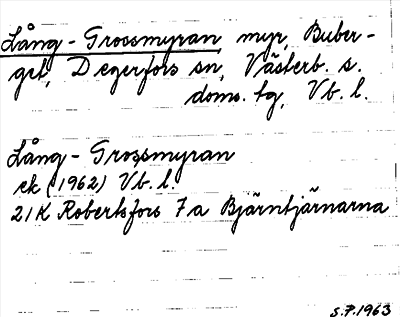 Lång-Grossmyran, myr, Buber-
get, Degerfors sn, Västerb. s.
doms. tg, Vb. l.
Lång-Grossmyran
ek (1962) Vb. l.
21K Robertsfors 7a Bjärntjärnarna
S.P. 1963